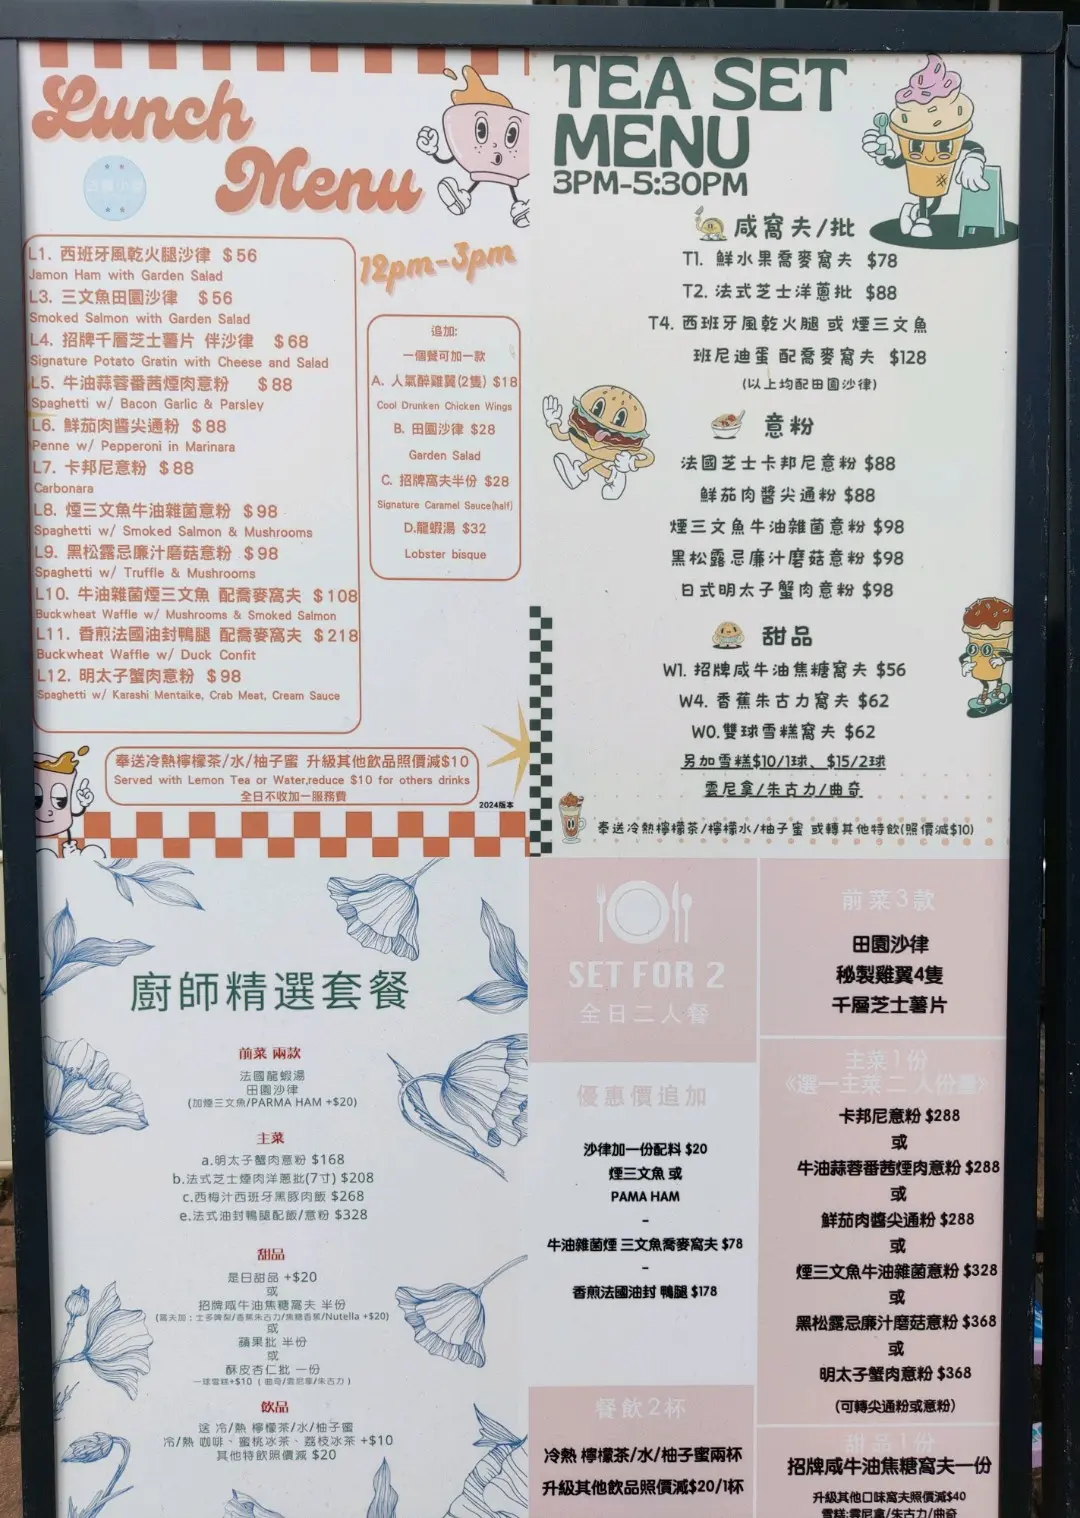 Lunch
Menu
12pm-3pm
L1. 西班牙風乾火腿沙律 $56
Jamon Ham with Garden Salad
L3. 三文魚田園沙律 $56
Smoked Salmon with Garden Salad
L4. 招牌千層芝士薯片 伴沙律 $68
Signature Potato Gratin with Cheese and Salad
L5. 牛油蒜蓉番茜煙肉意粉 $88
Spaghetti w/ Bacon Garlic & Parsley
L6. 鮮茄肉醬尖通粉 $88
Penne w/ Pepperoni in Marinara
L7. 卡邦尼意粉 $88
Carbonara
L8. 煙三文魚牛油雜菌意粉 $98
Spaghetti w/ Smoked Salmon & Mushrooms
L9. 黑松露忌廉汁磨菇意粉 $98
Spaghetti w/ Truffle & Mushrooms
L10. 牛油雜菌煙三文魚 配喬麥窩夫 $108
Buckwheat Waffle w/ Mushrooms & Smoked Salmon
L11. 香煎法國油封鴨腿 配喬麥窩夫 $218
Buckwheat Waffle w/ Duck Confit
L12. 明太子蟹肉意粉 $98
Spaghetti w/ Karashi Mentaike, Crab Meat, Cream Sauce
追加:
一個餐可加一款
A. 人氣醉雞翼(2隻) $18
Cool Drunken Chicken Wings
B. 田園沙律 $28
Garden Salad
C. 招牌窩夫半份 $28
Signature Caramel Sauce(half)
D.龍蝦湯 $32
Lobster bisque
奉送冷熱檸檬茶/水/柚子蜜 升級其他飲品照價減$10
Served with Lemon Tea or Water,reduce $10 for others drinks
全日不收加一服務費
2024版本
TEA SET
MENU
3PM-5:30PM
咸窩夫/批
T1. 鮮水果喬麥窩夫 $78
T2. 法式芝士洋蔥批 $88
T4. 西班牙風乾火腿 或 煙三文魚
班尼迪蛋 配喬麥窩夫 $128
(以上均配田園沙律)
意粉
法國芝士卡邦尼意粉 $88
鮮茄肉醬尖通粉 $88
煙三文魚牛油雜菌意粉 $98
黑松露忌廉汁磨菇意粉 $98
日式明太子蟹肉意粉 $98
甜品
W1. 招牌咸牛油焦糖窩夫 $56
W4. 香蕉朱古力窩夫 $62
W0.雙球雪糕窩夫 $62
另加雪糕$10/1球、 $15/2球
雲尼拿/朱古力/曲奇
奉送冷熱檸檬茶/檸檬水/柚子蜜 或轉其他特飲(照價減$10)
廚師精選套餐
前菜 兩款
法國龍蝦湯
田園沙律
(加煙三文魚/PARMA HAM +$20)
主菜
a.明太子蟹肉意粉 $168
b.法式芝士煙肉洋蔥批(7寸) $208
c.西梅汁西班牙黑豚肉飯 $268
e.法式油封鴨腿配飯/意粉 $328
甜品
是日甜品 +$20
或
招牌咸牛油焦糖窩夫 半份
(窩夫加：士多啤梨/香蕉朱古力/焦糖香蕉/Nutella +$20)
或
蘋果批 半份
或
酥皮杏仁批 一份
一球雪糕+$10 ( 曲奇/雲尼拿/朱古力 )
飲品
送 冷/熱 檸檬茶/水/柚子蜜
冷/熱 咖啡、蜜桃冰茶、荔枝冰茶 +$10
其他特飲照價減 $20
SET FOR 2
全日二人餐
優惠價追加
沙律加一份配料 $20
煙三文魚 或
PAMA HAM
-
牛油雜菌煙 三文魚喬麥窩夫 $78
-
香煎法國油封 鴨腿 $178
餐飲2杯
冷熱 檸檬茶/水/柚子蜜兩杯
升級其他飲品照價減$20/1杯
前菜3款
田園沙律
秘製雞翼4隻
千層芝士薯片
主菜1份
《選一主菜 二人份量》
卡邦尼意粉 $288
或
牛油蒜蓉番茜煙肉意粉 $288
或
鮮茄肉醬尖通粉 $288
或
煙三文魚牛油雜菌意粉 $328
或
黑松露忌廉汁磨菇意粉 $368
或
明太子蟹肉意粉 $368
(可轉尖通粉或意粉)
甜品1份
招牌咸牛油焦糖窩夫一份
升級其他口味窩夫照價減$40
雪糕:雲尼拿/朱古力/曲奇